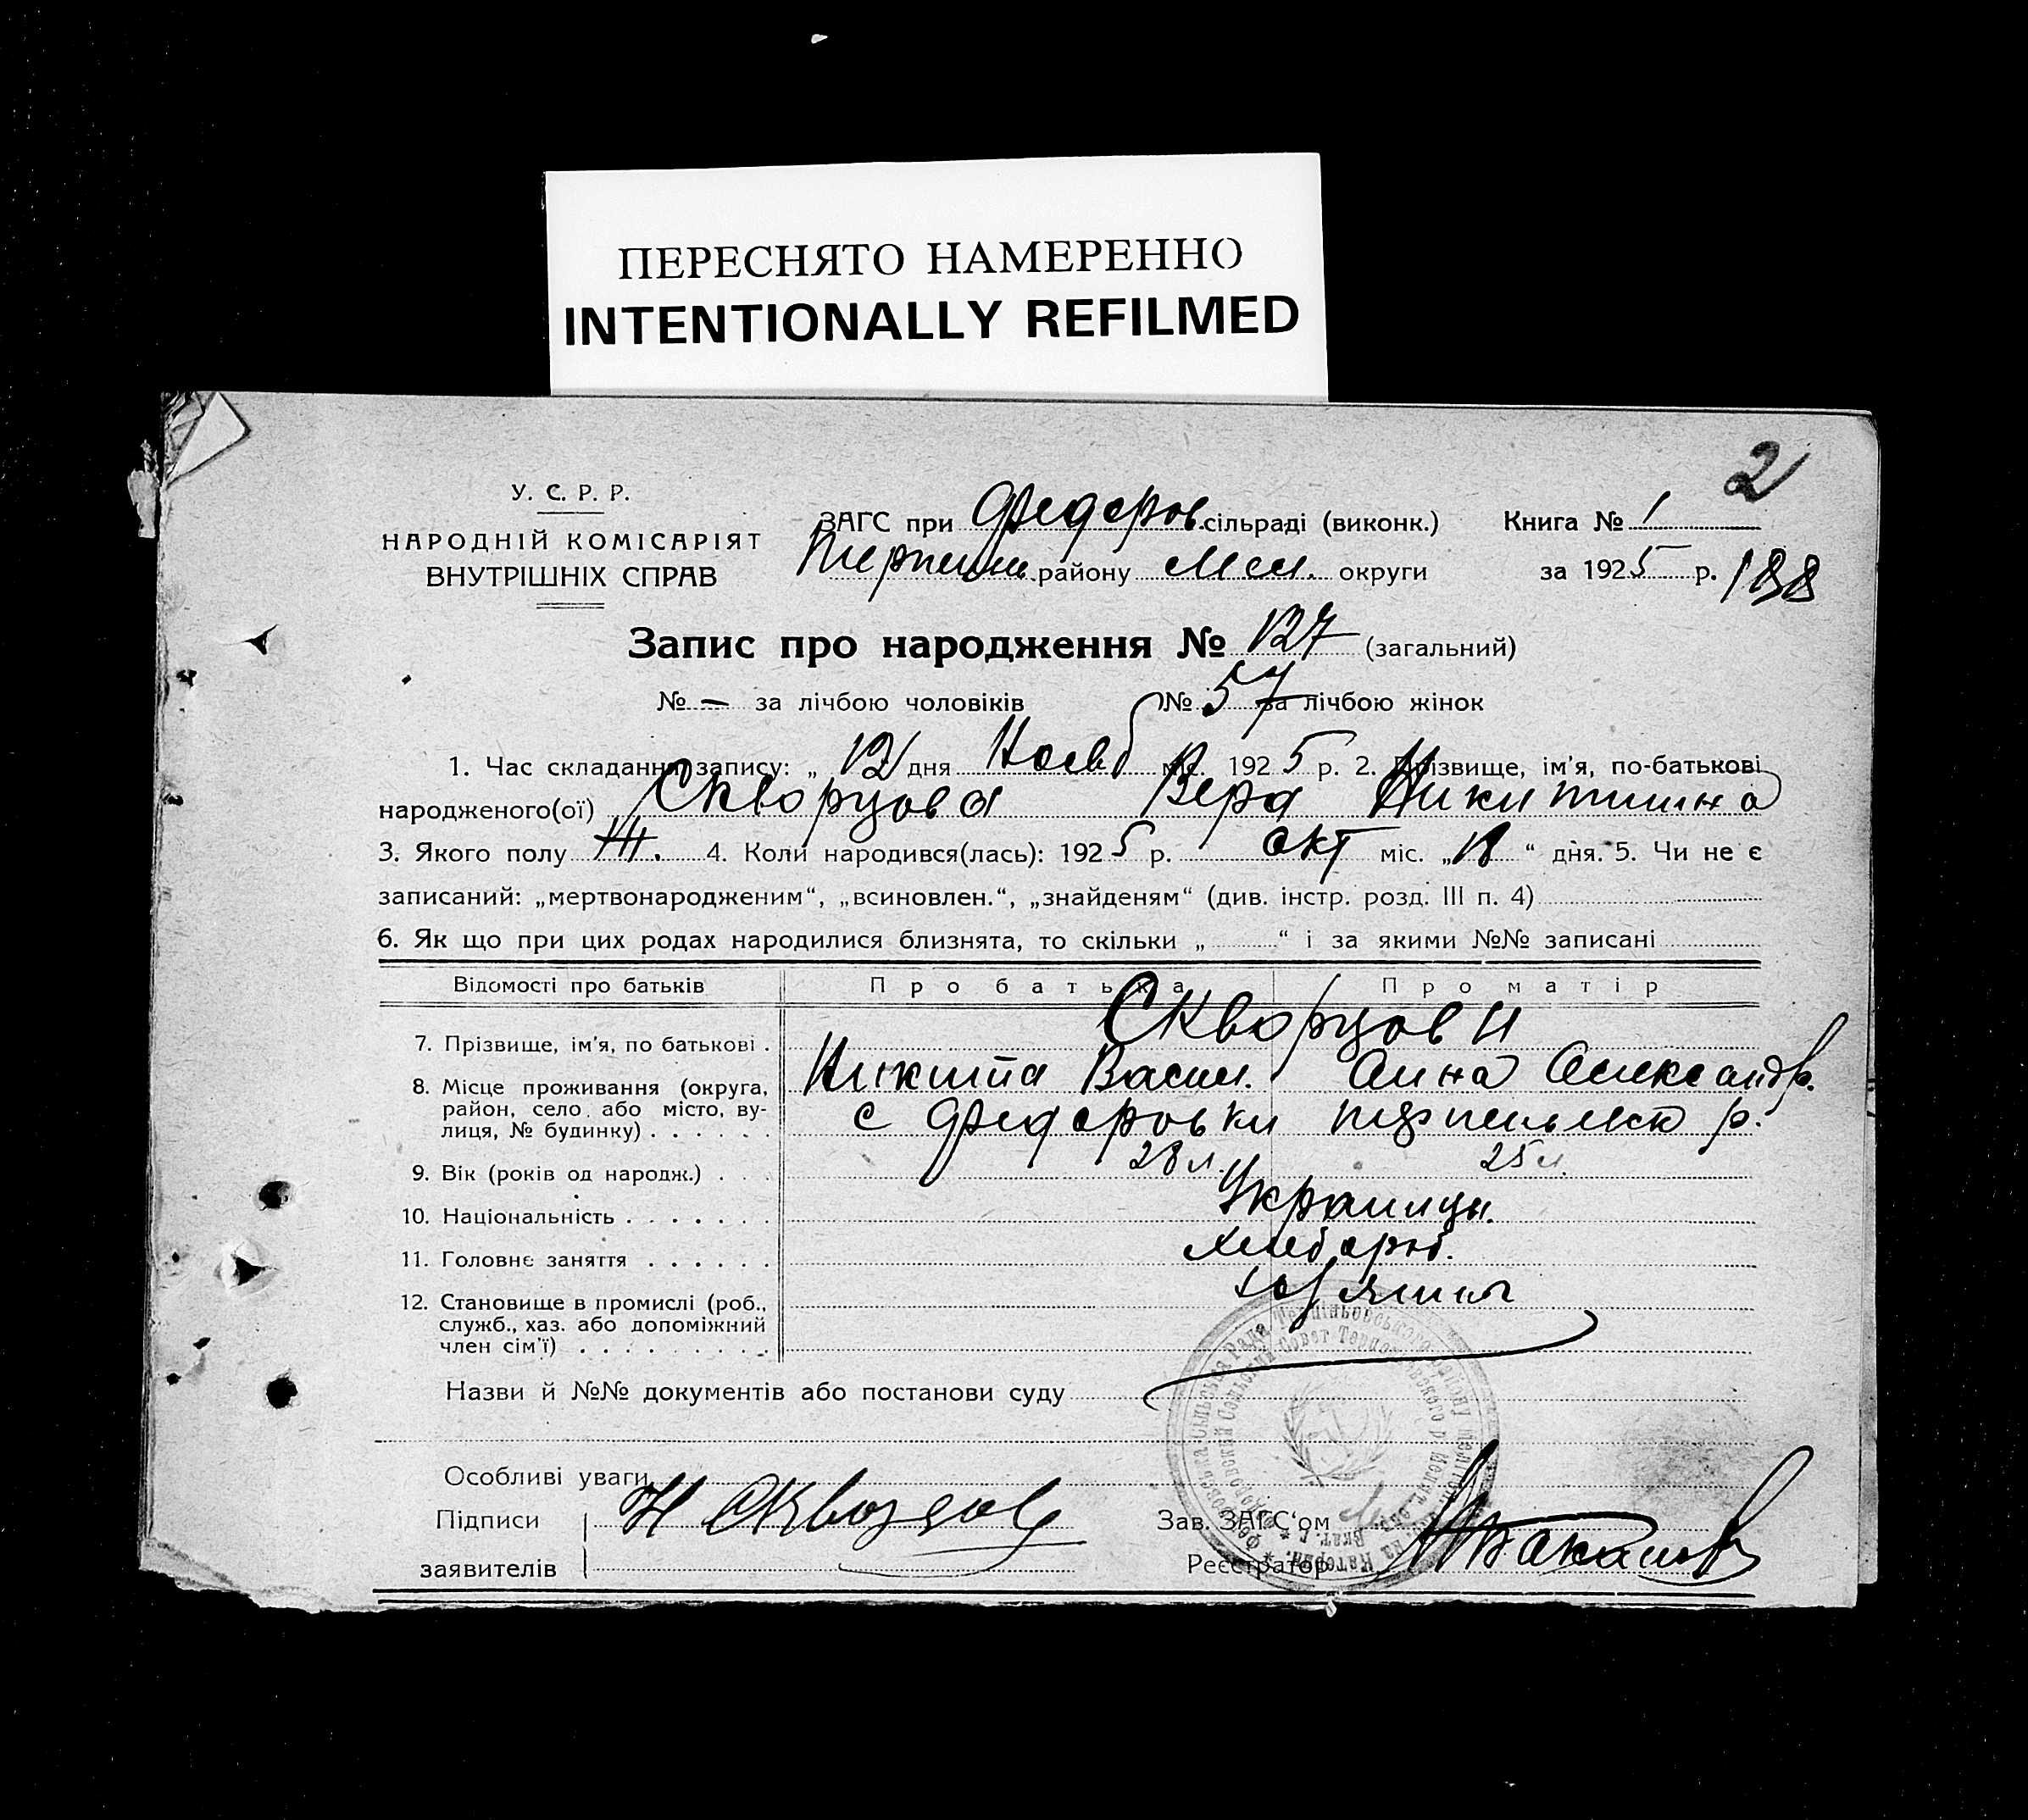 ПЕРЕСНЯТО НАМЕРЕННО
INTENTIONALLY REFILMED
2
У. С. Р. Р.
НАРОДНІЙ КОМІСАРІЯТ
ВНУТРІШНІХ СПРАВ
ЗАГС при Федоров. сільраді (виконк.) Книга № 1
Терпин. району Мел. округи за 1925 р. 188
Запис про народження № 127 (загальний)
№ – за лічбою чоловіків № 57 за лічбою жінок
1. Час складання запису: „ 12 дня Нояб міс. 1925 р. 2. Прізвище, ім'я, по-батькові
народженого(ої) Скворцова Вера Никитишна
3. Якого полу Ж. 4. Коли народився(лась): 1925 р. окт міс. „ “ дня. 5. Чи не є
записаний: „мертвонародженим“, „всиновлен.“, „знайденям“ (див. інстр. розд. III п. 4)
6. Як що при цих родах народилися близнята, то скільки „ “ і за якими №№ записані
Відомості про батьків Про батька Про матір
Скворцови
7. Прізвище, ім'я, по батькові .
Никита Васил. Анна Александр.
8. Місце проживання (округа,
район, село або місто, ву-
лиця, № будинку) . . . . . .
с Федоровки р.
9. Вік (років од народж.) . . . 28 л. 25 л.
10. Національність . . . . . . . Украинцы.
11. Головнє заняття . . . . . . хлебороб.
12. Становище в промислі (роб.,
служб., хаз. або допоміжний
член сім'ї) . . . . . . . . .
Назви й №№ документів або постанови суду
Особливі уваги
Підписи Н Скворцов Зав. ЗАГС'ом
заявителів Реєстратор